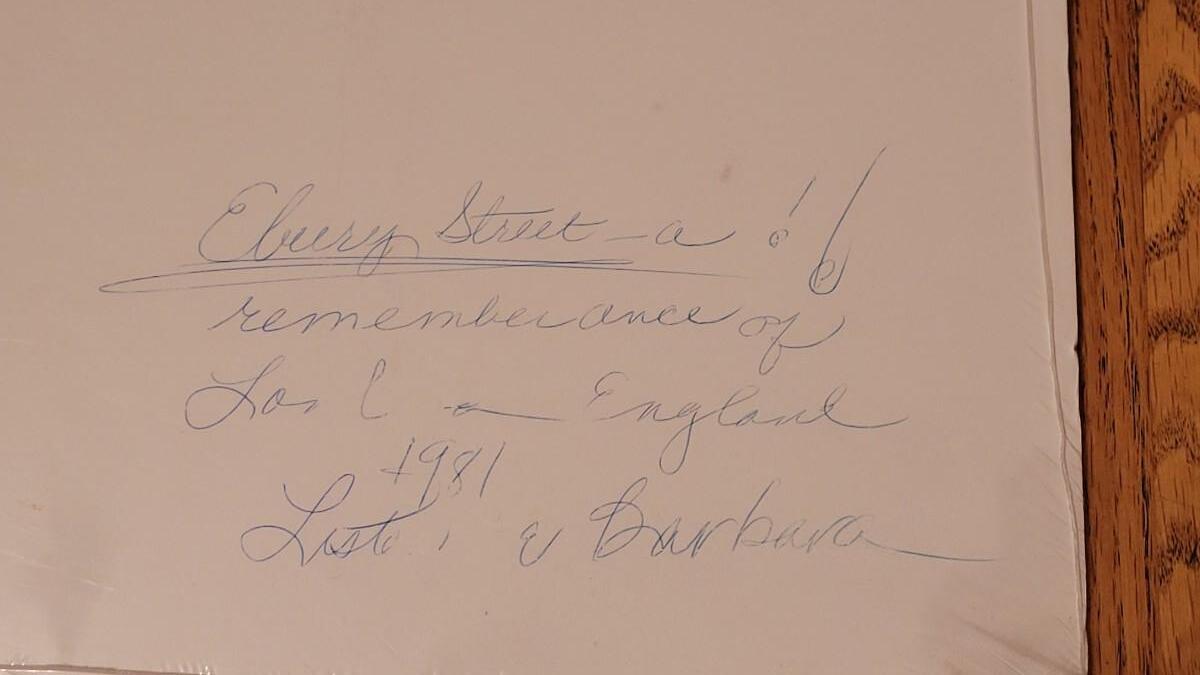 Ebury Street - a !!
rememberance of
England
1981
& Barbara